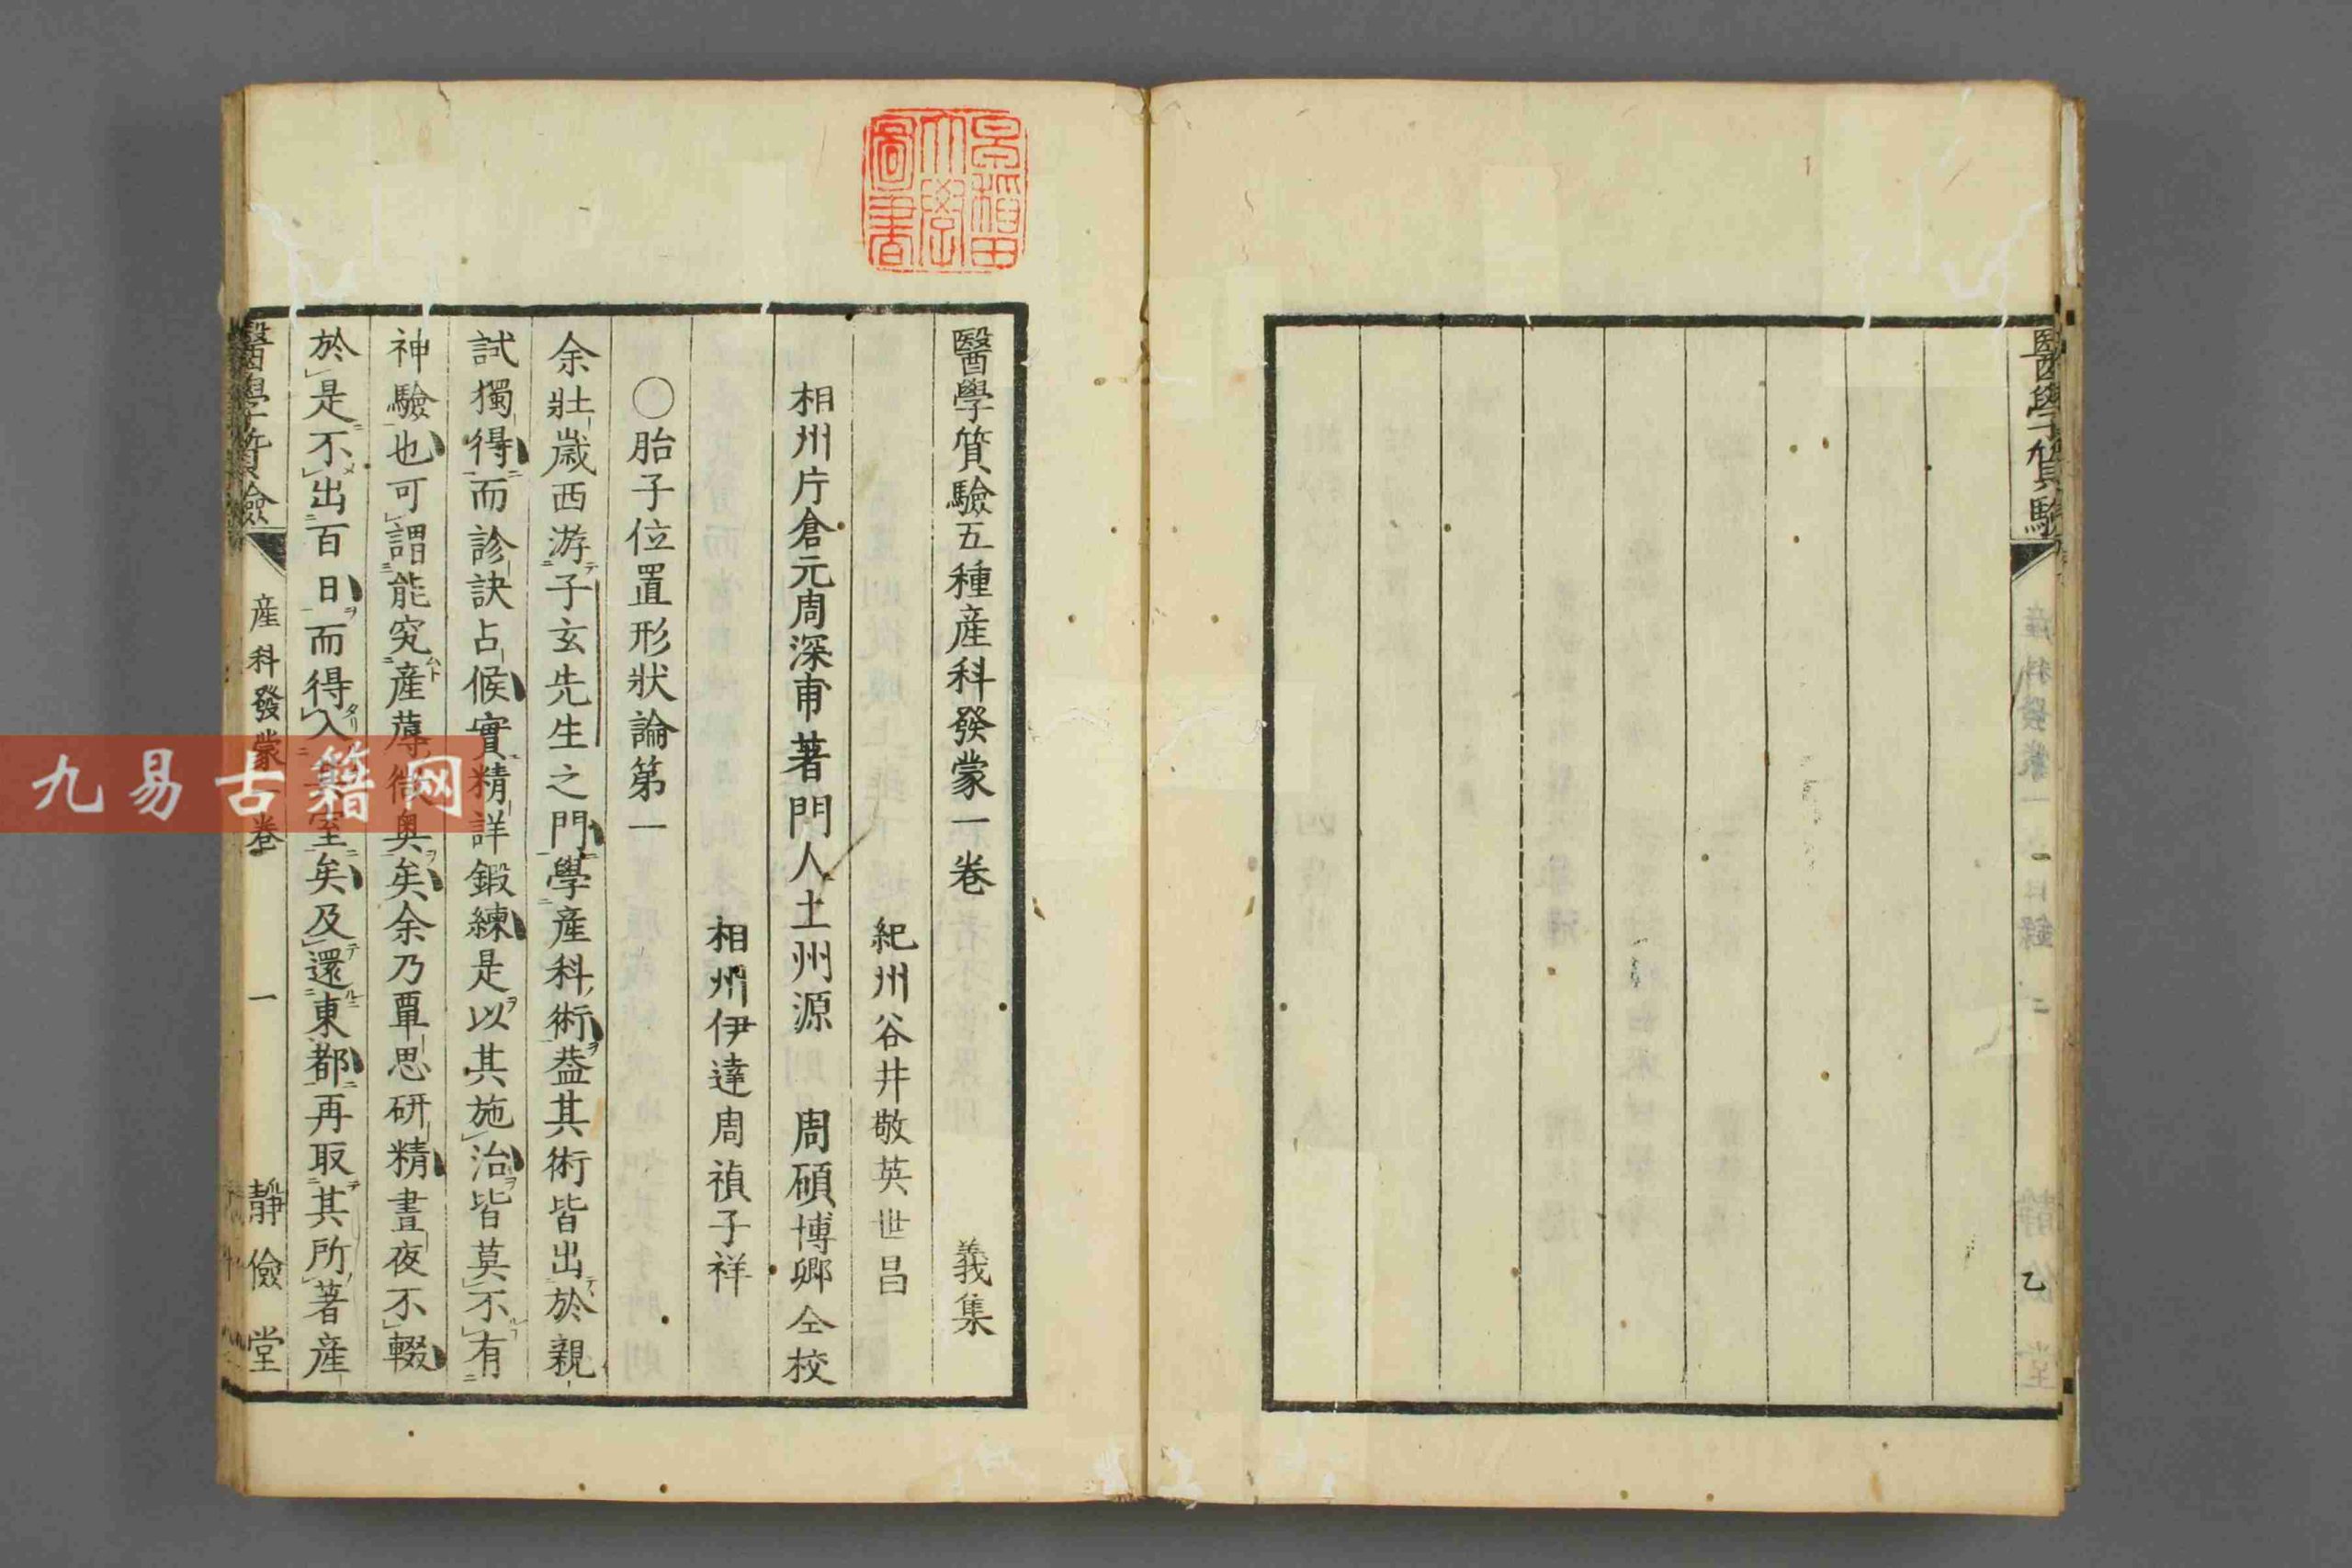 醫學質驗
産科發蒙一
目録
二
乙
醫學質驗五種産科發蒙一卷 義集
紀州谷井敬英世昌
相州片倉元周深甫著門人土州源 周碩博卿仝校
相州伊達周禎子祥
〇胎子位置形狀論第一
余壯歲西游子玄先生之門學産科術葢其術皆出於親
試獨得而診訣占候實精詳鍛練是以其施治皆莫不有
神驗也可謂能究産蓐微奥矣余乃覃思研精晝夜不輟
於是不出百日而得入其室矣及還東都再取其所著産
醫學質驗
産科發蒙一卷
一
靜儉堂
九易古籍网